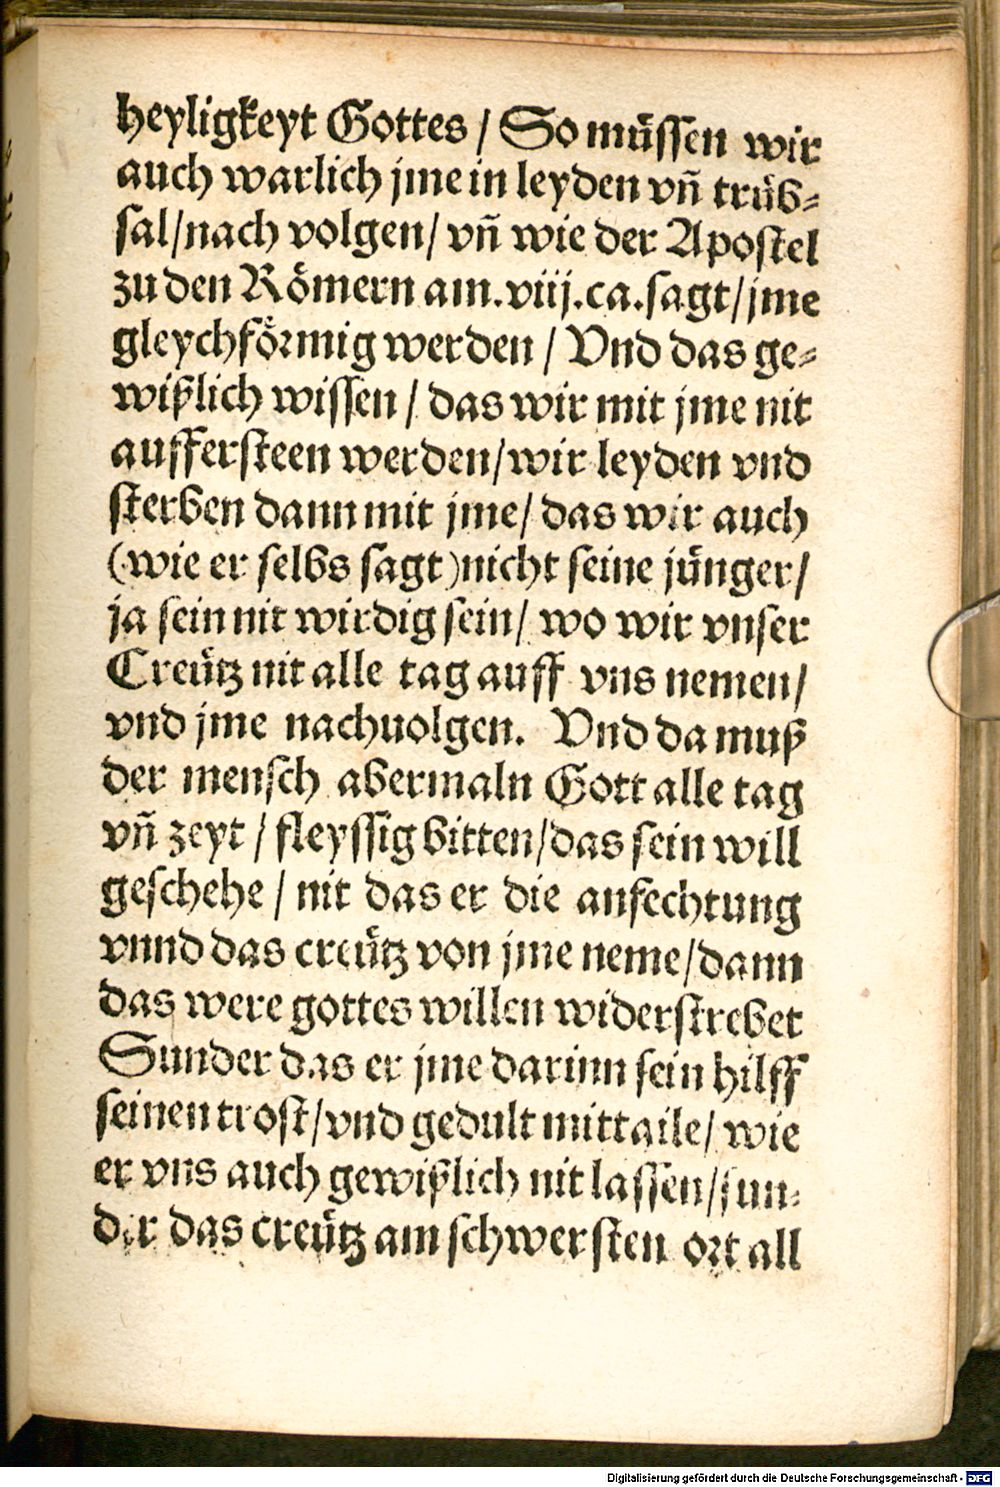 heyligkeyt Gottes / So müssen wir
auch warlich jme in leyden vñ trüb⸗
sal / nach volgen / vñ wie der Apostel
zu den Römern am . viij . ca . sagt / jme
gleychförmig werden / Vnd das ge⸗
wißlich wissen / das wir mit jme nit
aufferſteen werden / wir leyden vnd
sterben dann mit jme / das wir auch
( wie er selbs sagt ) nicht seine jünger /
ja sein nit wirdig sein / wo wir vnser
Creütz nit alle tag auff vns nemen /
vnd jme nachuolgen . Vnd da muß
der mensch abermaln Gott alle tag
vñ zeyt / fleyssig bitten / das sein will
geschehe / nit das er die anfechtung
vnnd das creütz von jme neme / dann
das were gottes willen widerstrebet
Sunder das er jme darinn sein hilff
seinen trost / vnd gedult mittaile / wie
er vns auch gewißlich nit lassen / sun⸗
der das creütz am schwersten ort all
Digitalisierung gefördert durch die Deutsche Forschungsgemeinschaft - DFG